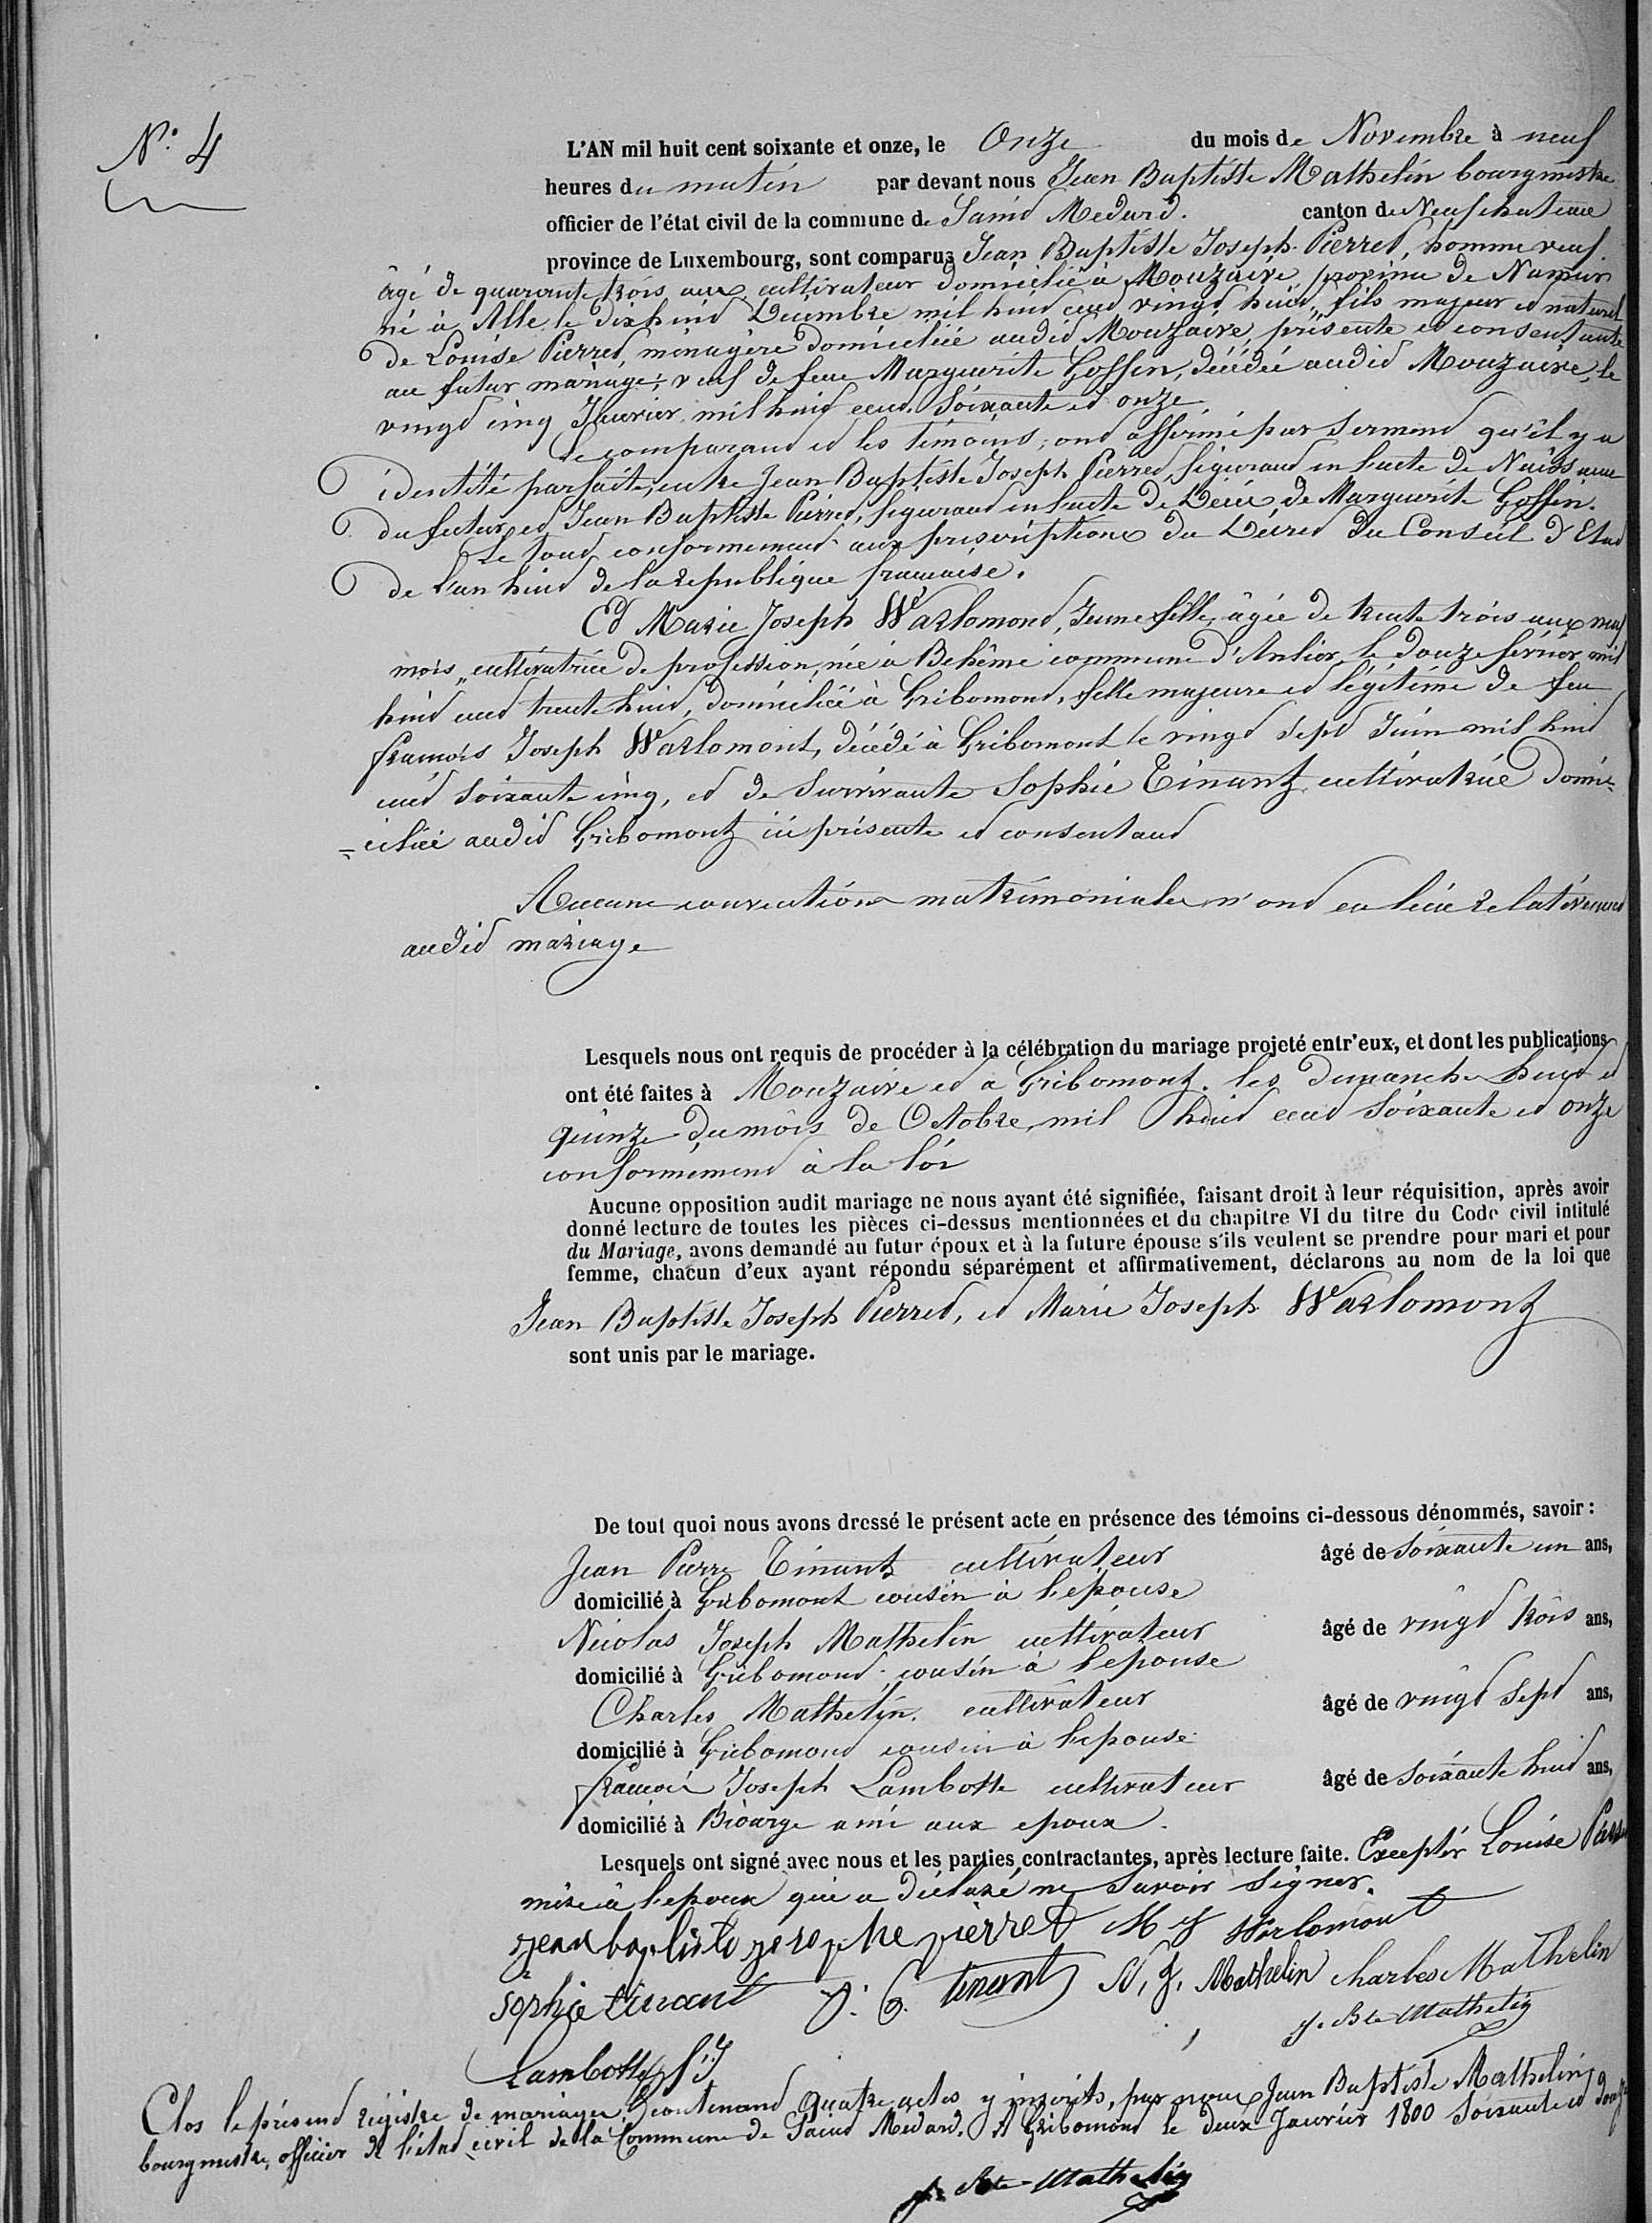 N° 4
L'AN mil huit cent soixante et onze, le Onze du mois de Novembre à neuf
heures du matin par devant nous Jean Baptiste Mathelin bourgmestre
officier de l'état civil de la commune de Saint Medard. canton de Neufchateau
province de Luxembourg, sont comparus Jean Baptiste Joseph Pierret, homme veuf
âgé de quarante trois ans cultivateur domicilié à Mouzaive province de Namur
né à Alle le dix huit Décembre mil huit cent vingt huit, fils majeur et naturel
de Louise Pierret, ménagère domiciliée audit Mouzaive, présente et consentante
au futur mariage; veuf de feue Marguerite Goffin, décédée audit Mouzaive, le
vingt cinq Janvier mil huit cent soixante et onze
Le comparant et les témoins, ont affirmé par serment qu'il y a
identité parfaite, entre Jean Baptiste Joseph Pierret, figurant en l'acte de Naissance
du futur, et Jean Baptiste Pierret, figurant en l'acte de Décès de Marguerite Goffin.
Le tout conformement aux prescriptions du Décret du Conseil d'Etat
de l'an huit de la republique française.
Et Marie Joseph Warlomont, Jeune fille, âgée de trente trois ans neuf
mois, cultivatrice de profession, née à Behême commune d'Anlier, le douze février mil
huit cent trente huit, domiciliée à Gribomont, fille majeure et légitime de feu
françois Joseph Warlomont, décédé à Gribomont le vingt sept Juin mil huit
cent soixante cinq, et de survivante Sophie Tinant, cultivatrice domi=
=ciliée audit Gribomont ici présente et consentant
Aucune conventions matrimoniales n'ont eu lieu relativement
audit mariage
Lesquels nous ont requis de procéder à la célébration du mariage projeté entr'eux, et dont les publications
ont été faites à Mouzaive et a Gribomont. les Dimanche huit et
quinze du mois de Octobre, mil huit cent soixante et onze
conformement à la loi
Aucune opposition audit mariage ne nous ayant été signifiée, faisant droit à leur réquisition, après avoir
donné lecture de toutes les pièces ci-dessus mentionnées et du chapitre VI du titre du Code civil intitulé
du Mariage, avons demandé au futur époux et à la future épouse s'ils veulent se prendre pour mari et pour
femme, chacun d'eux ayant répondu séparément et affirmativement, déclarons au nom de la loi que
Jean Baptiste Joseph Pierret, et Marie Joseph Warlomont
sont unis par le mariage.
De tout quoi nous avons dressé le présent acte en présence des témoins ci-dessous dénommés, savoir :
Jean Pierre Tinant cultivateur âgé de soixante un ans,
domicilié à Gribomont cousin à l'epouse
Nicolas Joseph Mathelin cultivateur âgé de vingt trois ans,
domicilié à Gribomont cousin à l'epouse
Charles Mathelin cultivateur âgé de vingt sept ans,
domicilié à Gribomont cousin à l'epouse
françois Joseph Lambotte cultivateur âgé de soixante huit ans,
domicilié à Biourge ami aux epoux.
Lesquels ont signé avec nous et les parties contractantes, après lecture faite. Excepter Louise Pierret
mère à l'epoux qui a déclaré ne savoir signer.
jean baptiste josephe pierret M J Warlomont
sophie tinant J. P. tinant N. J. Mathelin charles Mathelin
J. Bte Mathelin
Lambotte f: J
Clos le présent régistre de mariages, contenant quatre actes y inscrits, par nous Jean Baptiste Mathelin
bourgmestre, officier de l'état civil de la Commune de Saint Medard. A Gribomont le deux Janvier 1800 soixante et douze
J. Bte Mathelin